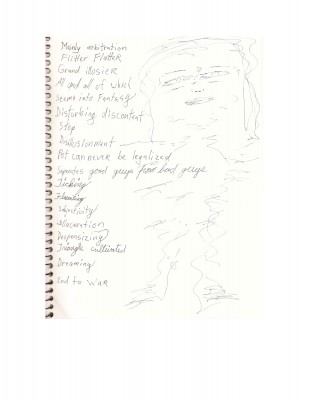 Mainly arbitration
Flitter Flatter
Grand illosier
Al and all of which
Seems into Fantasy
Disturbing discontent
Step
Disillusionment
Pot can never be legalized
Separates good guys from bad guys
Sensitivity
Dispensizing
Triangle cultivated
Dreaming
end to war